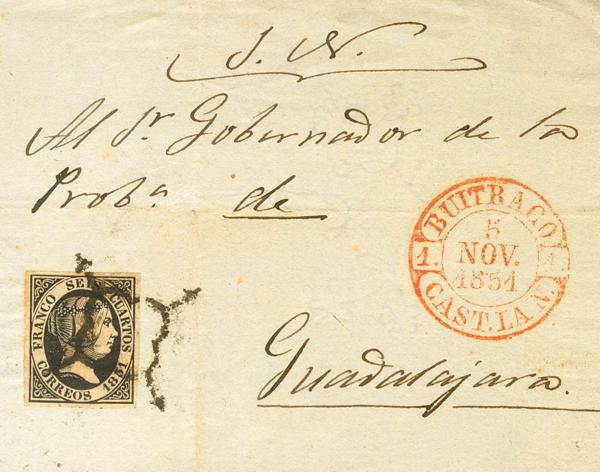 S. N.
Al Sr Gobernador de la
Proba. de
BUITRAGO
5
NOV.
1851
1. 1.
CAST. LA N.
FRANCO SEIS CUARTOS
CORREOS 1851
Guadalajara.